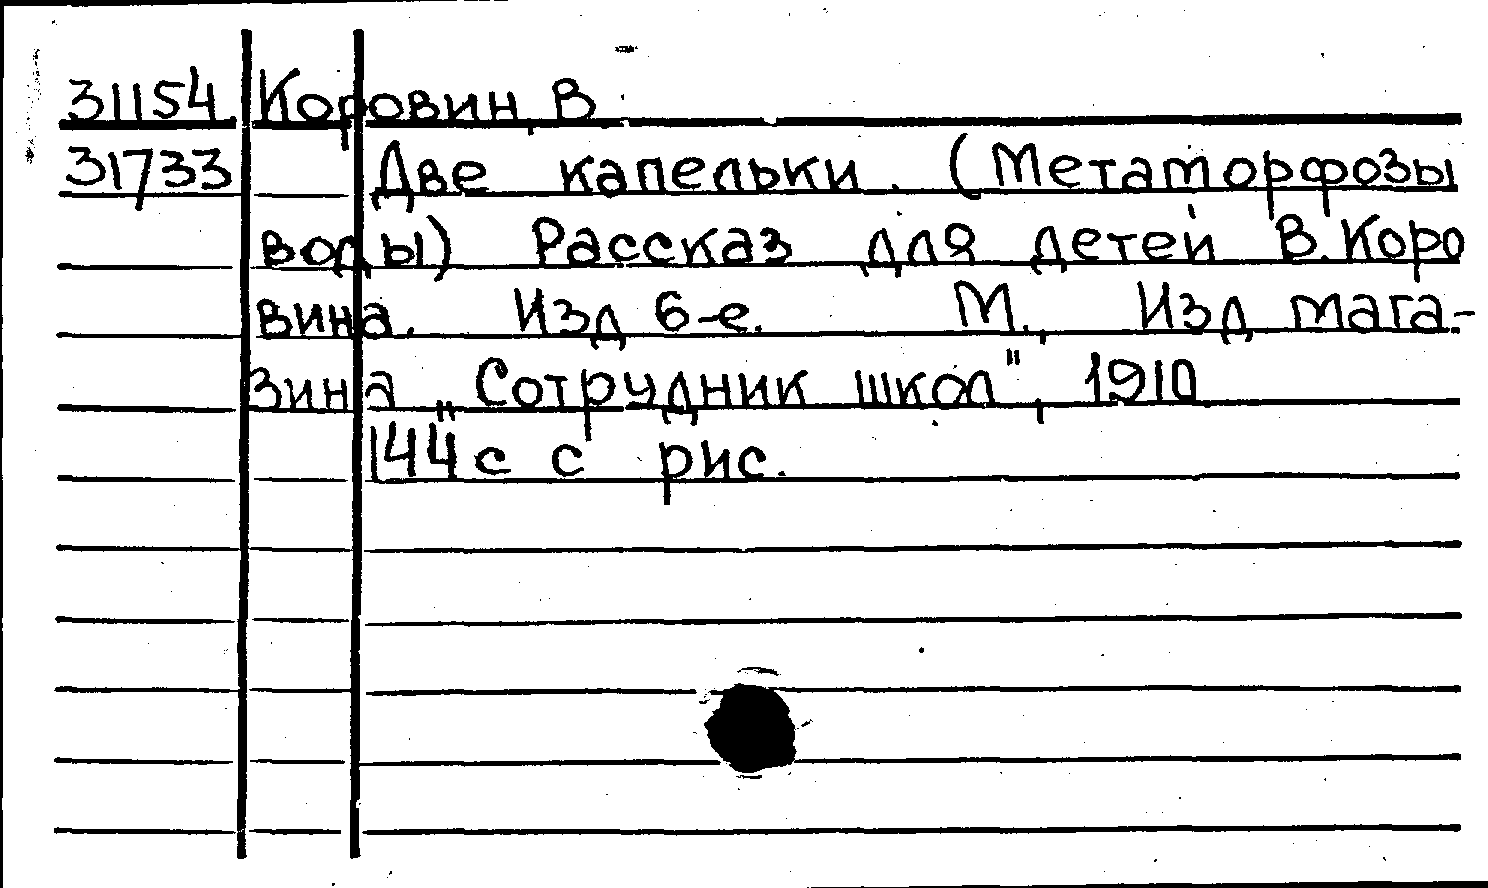 31154 Коровин, В
31733 Две капельки. (Метаморфозы
воды) Рассказ для детей В. Коро
вина. Изд 6-е. М., Изд мага-
зина „Сотрудник школ", 1910
144 с с рис.